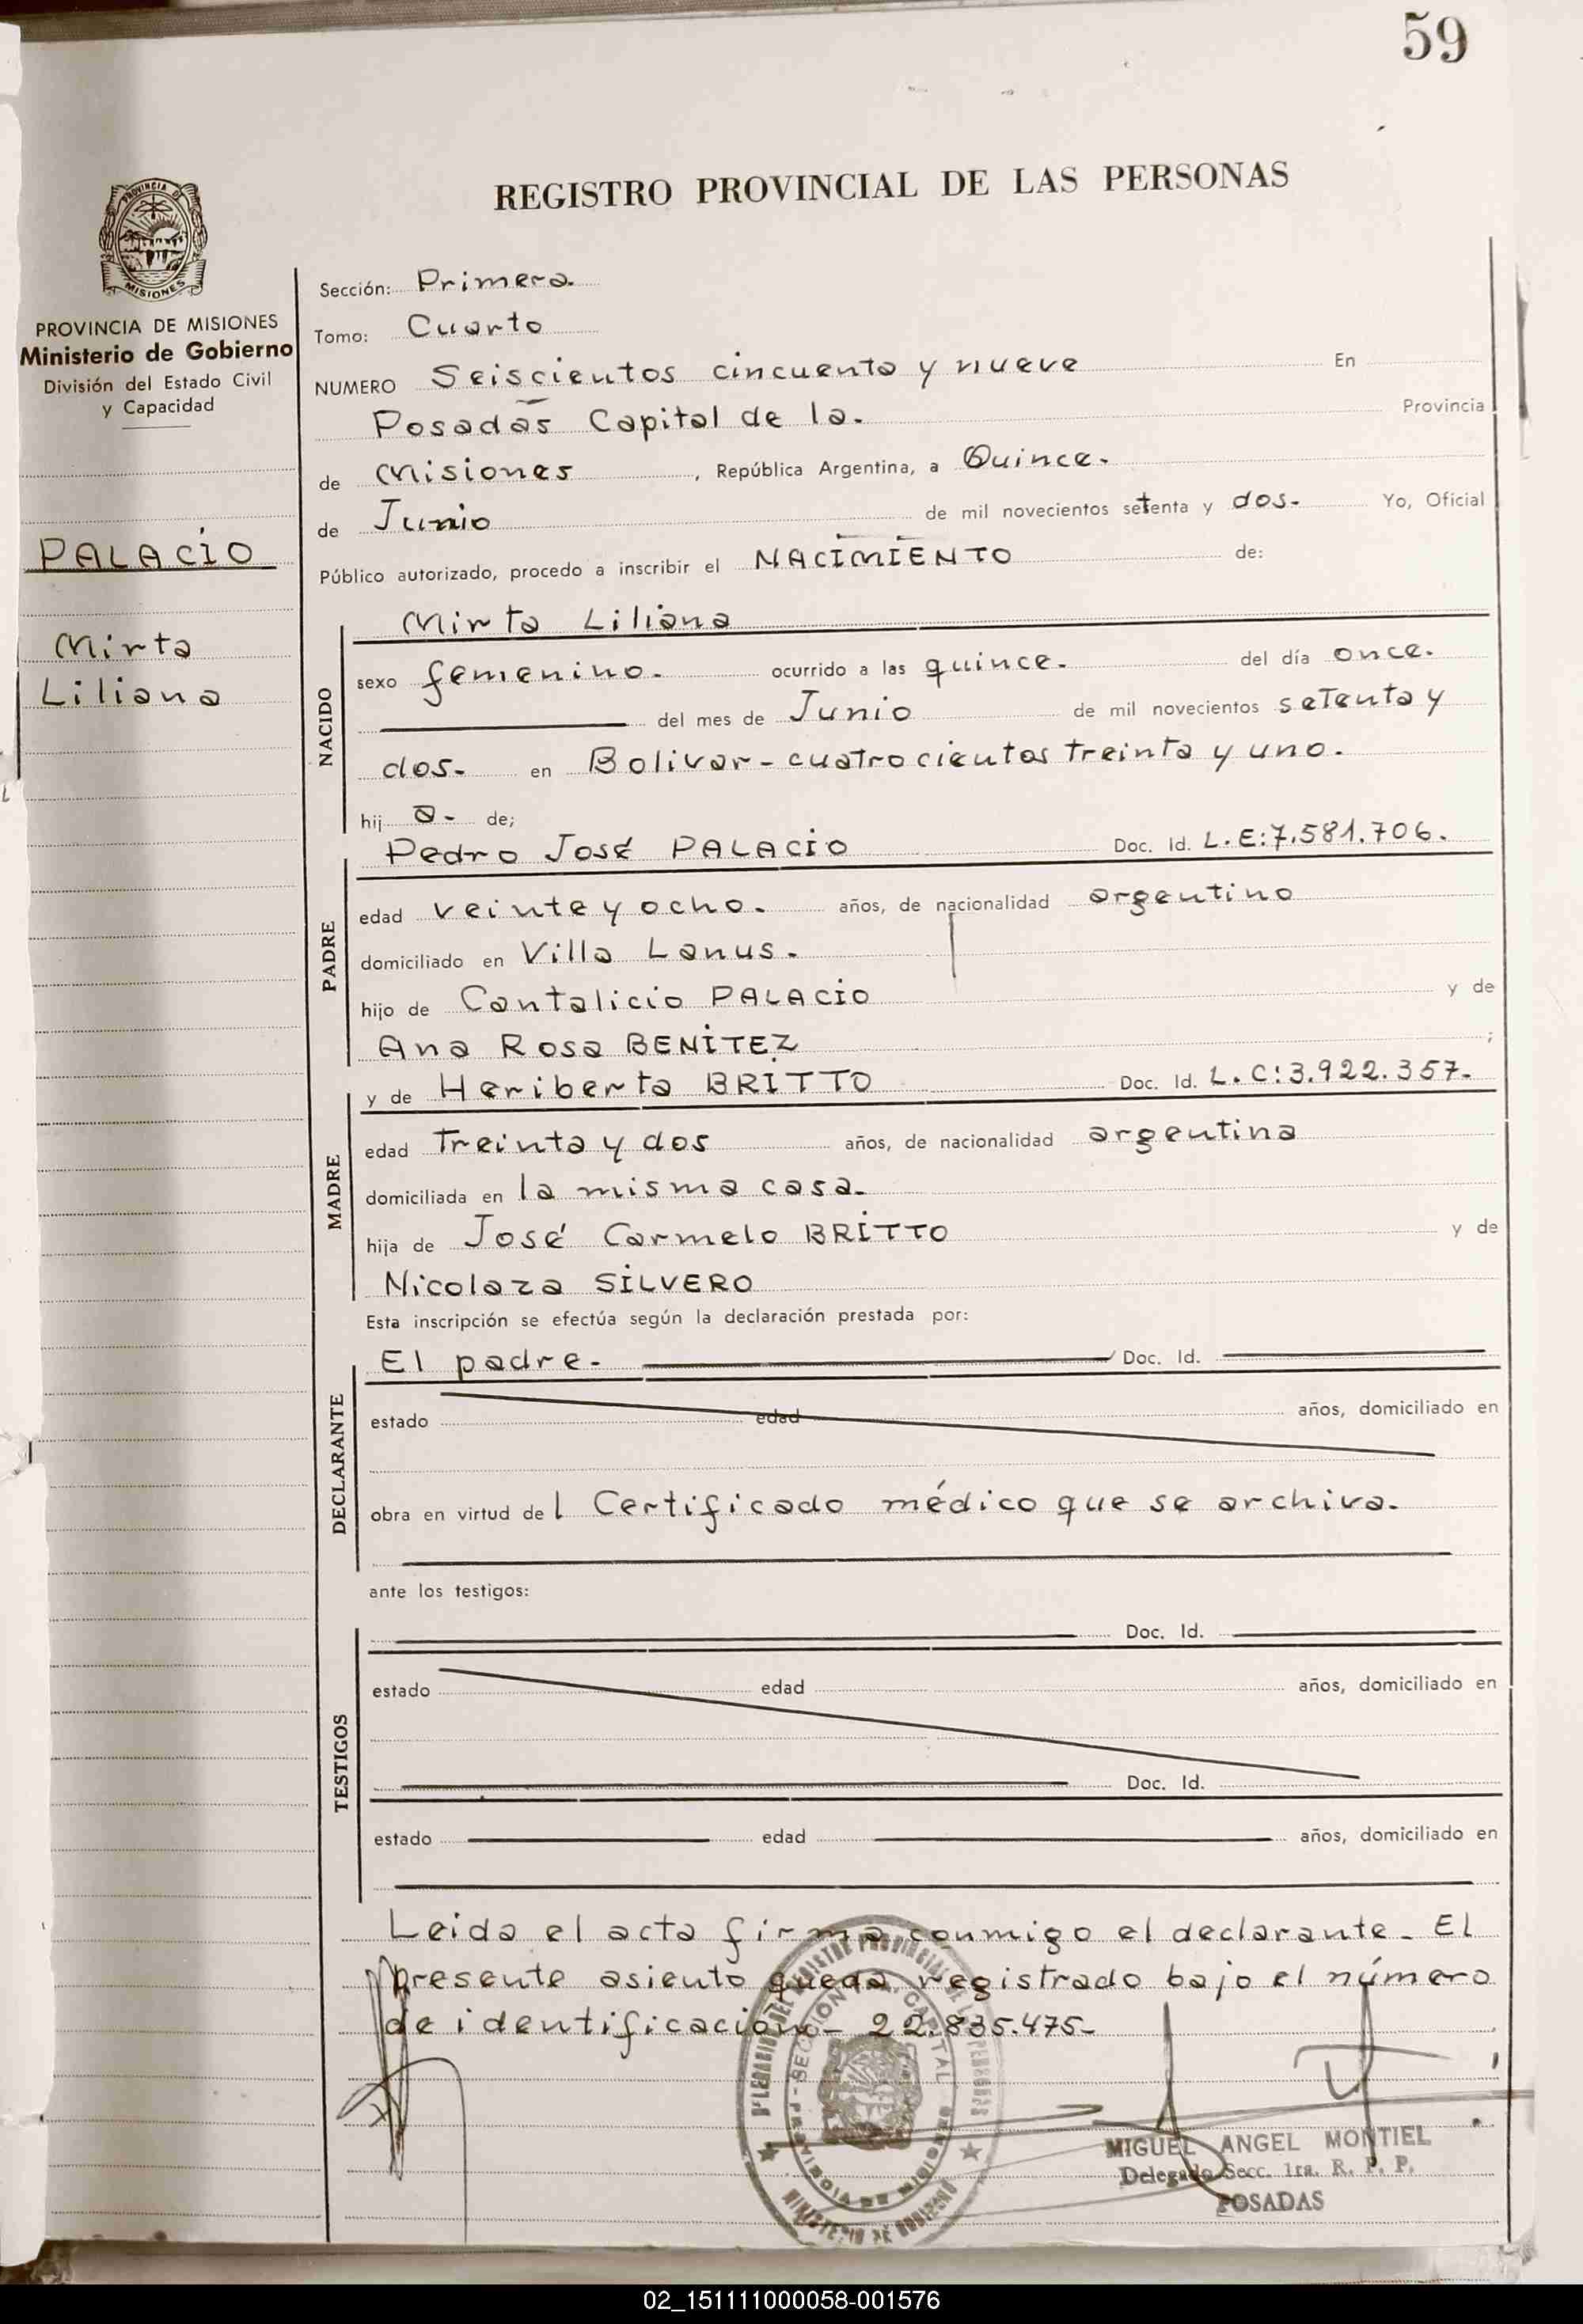 59
REGISTRO PROVINCIAL DE LAS PERSONAS
PROVINCIA DE
MISIONES
PROVINCIA DE MISIONES
Ministerio de Gobierno
División del Estado Civil
y Capacidad
PALACIO
Mirta
Liliana
Sección: Primera.
Tomo: Cuarto
NUMERO Seiscientos cincuenta y nueve En
Posadas Capital de la. Provincia
de Misiones, República Argentina, a Quince.
de Junio de mil novecientos setenta y dos. Yo, Oficial
Público autorizado, procedo a inscribir el NACIMIENTO de:
NACIDO
Mirta Liliana
sexo femenino. ocurrido a las quince. del día once.
del mes de Junio de mil novecientos setenta y
dos. en Bolivar - cuatrocientos treinta y uno.
hij a. de;
PADRE
Pedro José PALACIO Doc. Id. L.E:7.581.706.
edad veinte y ocho. años, de nacionalidad argentino
domiciliado en Villa Lanus.
hijo de Cantalicio PALACIO y de
Ana Rosa BENITEZ ;
MADRE
y de Heriberta BRITTO Doc. Id. L.C:3.922.357.
edad Treinta y dos años, de nacionalidad argentina
domiciliada en la misma casa.
hija de José Carmelo BRITTO y de
Nicolaza SILVERO
Esta inscripción se efectúa según la declaración prestada por:
DECLARANTE
El padre. Doc. Id.
estado edad años, domiciliado en
obra en virtud del Certificado médico que se archiva.
ante los testigos:
TESTIGOS
Doc. Id.
estado edad años, domiciliado en
Doc. Id.
estado edad años, domiciliado en
Leida el acta firma conmigo el declarante. El
presente asiento queda registrado bajo el número
de identificación - 22.835.475-
MIGUEL ANGEL MONTIEL
Delegado Secc. 1ra. R. P. P.
POSADAS
02_151111000058-001576